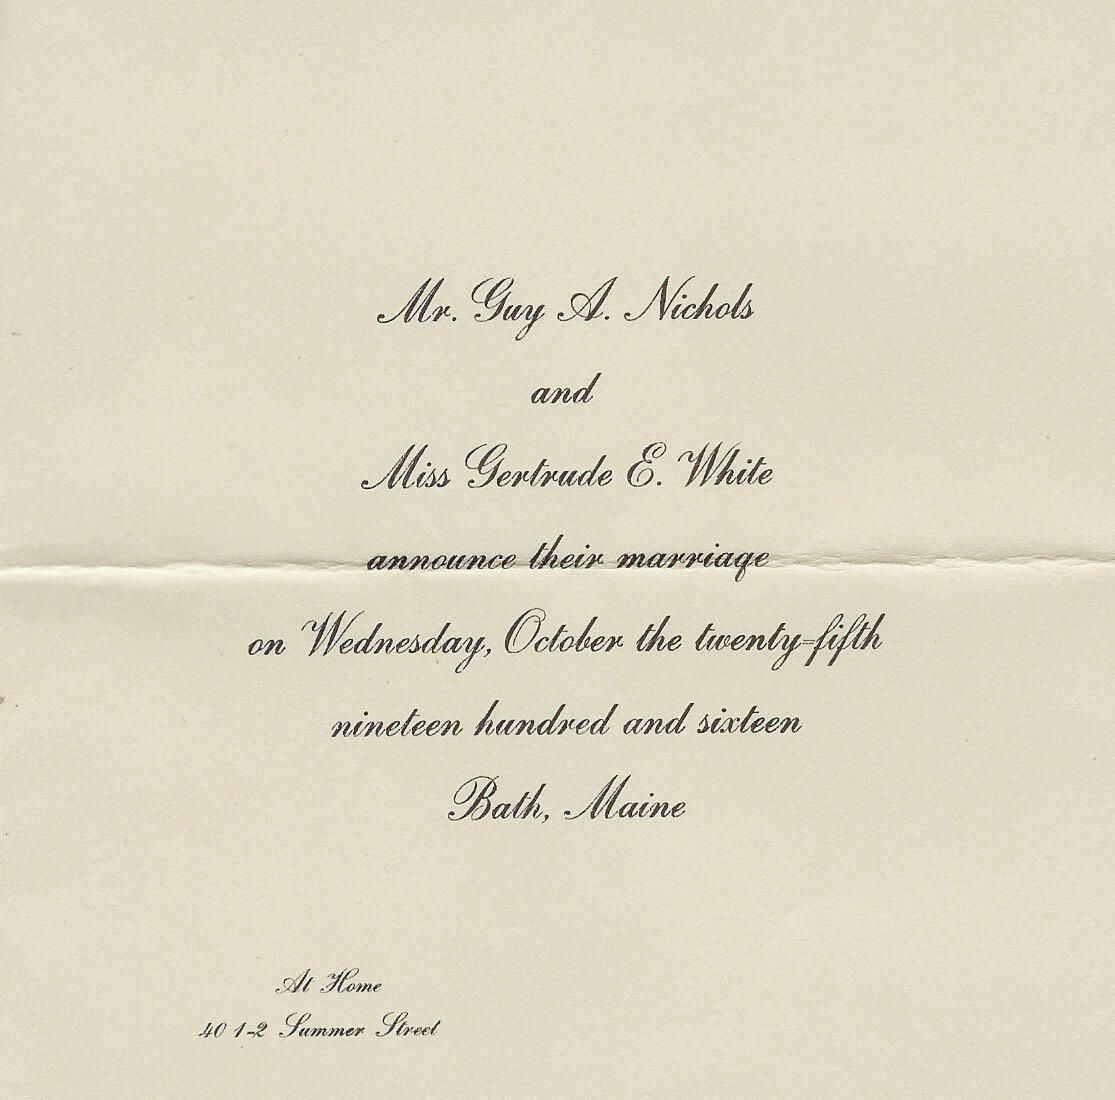 Mr. Guy A. Nichols
and
Miss Gertrude E. White
announce their marriage
on Wednesday, October the twenty-fifth
nineteen hundred and sixteen
Bath, Maine
At Home
40 1-2 Summer Street